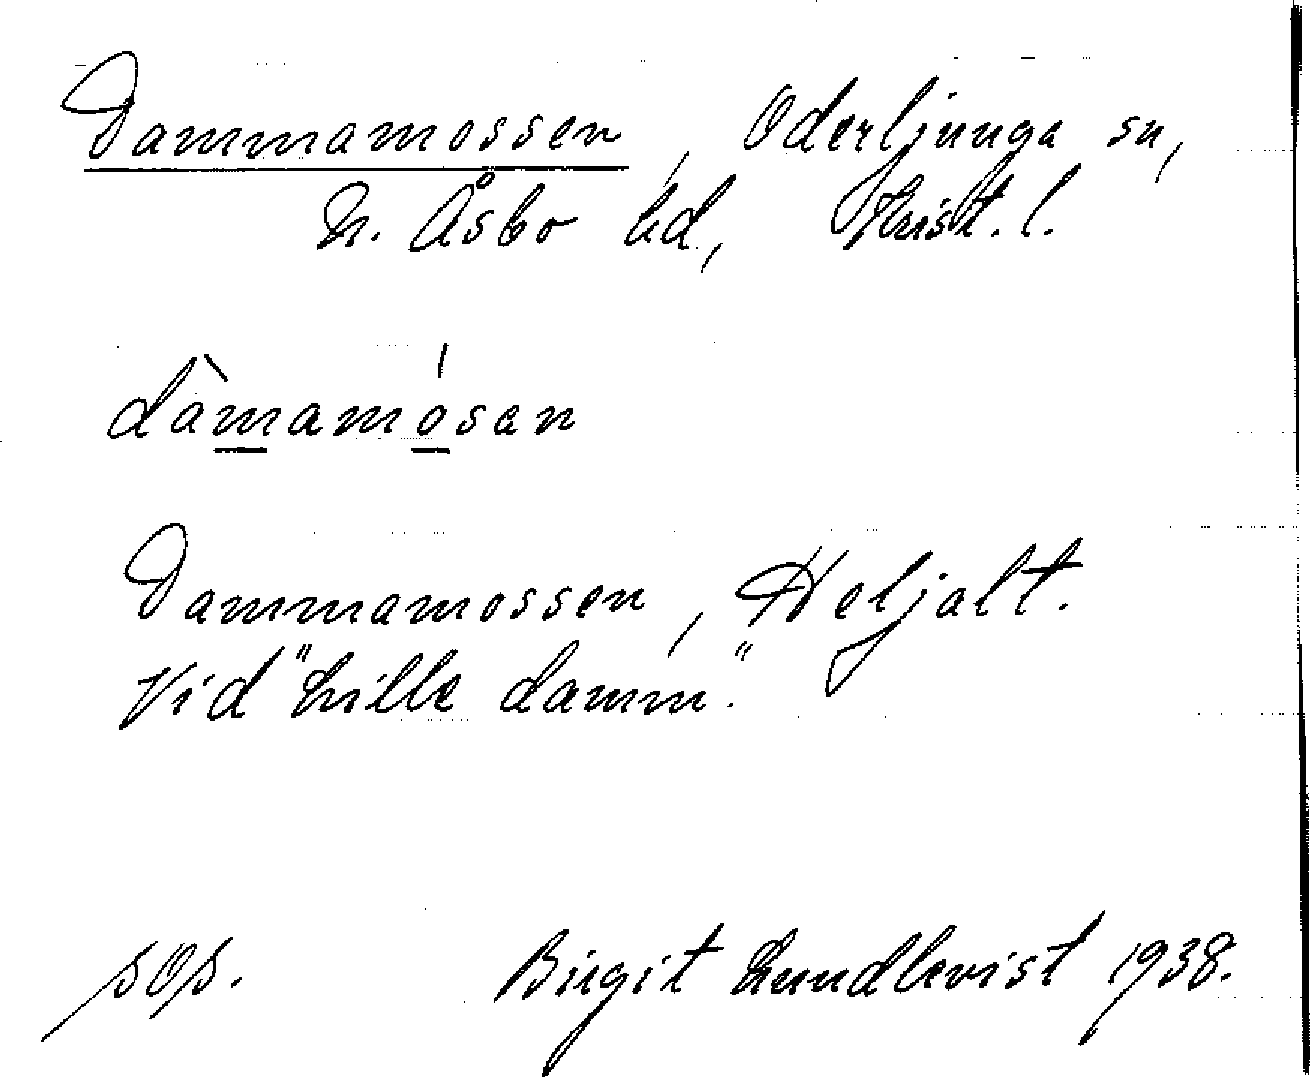 Dammamossen, Oderljunga sn,
N. Åsbo hd, Krist. l.
dàmamósen
Dammamossen, Heljalt.
Vid "Lille damm."
sOs. Birgit Lundkvist 1938.